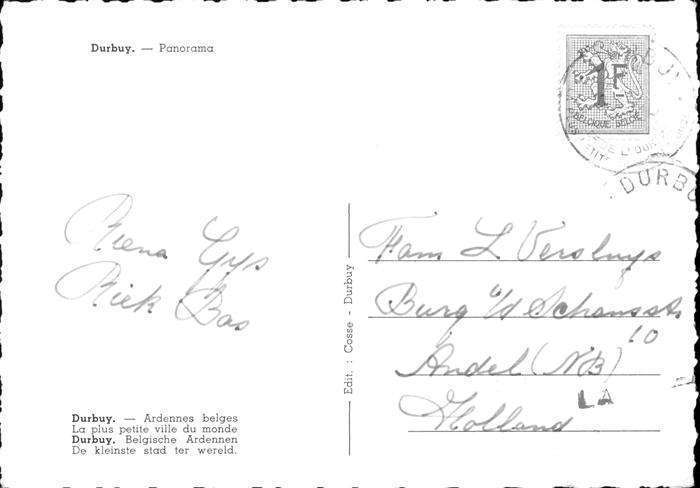 Durbuy. — Panorama
1F
BELGIQUE-BELGIE
DURBUY
Riena Gys
Riek Bas
Edit. : Cosse - Durbuy
Fam L Versluys
Burg v/d Schansstr.
10
Andel (NB)
LA
Holland
Durbuy. — Ardennes belges
La plus petite ville du monde
Durbuy. Belgische Ardennen
De kleinste stad ter wereld.